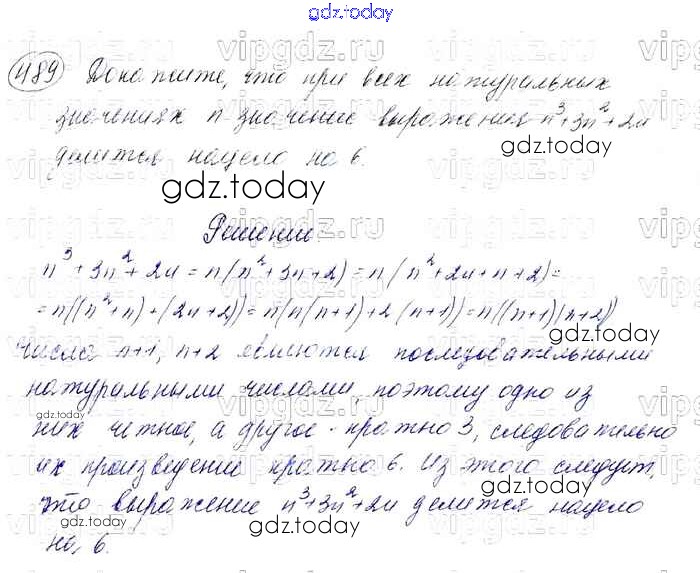 gdz.today
489 Докажите, что при всех натуральных
значениях n значение выражения n³+3n²+2n
делится нацело на 6.
gdz.today
gdz.today
Решение
n³ + 3n² + 2n = n(n² + 3n + 2) = n(n² + 2n + n + 2) =
= n((n² + n) + (2n + 2)) = n(n(n+1) + 2(n+1)) = n((n+1)(n+2))
gdz.today
Числа n+1, n+2 являются последовательными
натуральными числами, поэтому одно из
gdz.today
них четное, а другое - кратно 3, следовательно
их произведение кратно 6. Из этого следует,
gdz.today
что выражение n³+3n²+2n делится нацело
на 6.
gdz.today